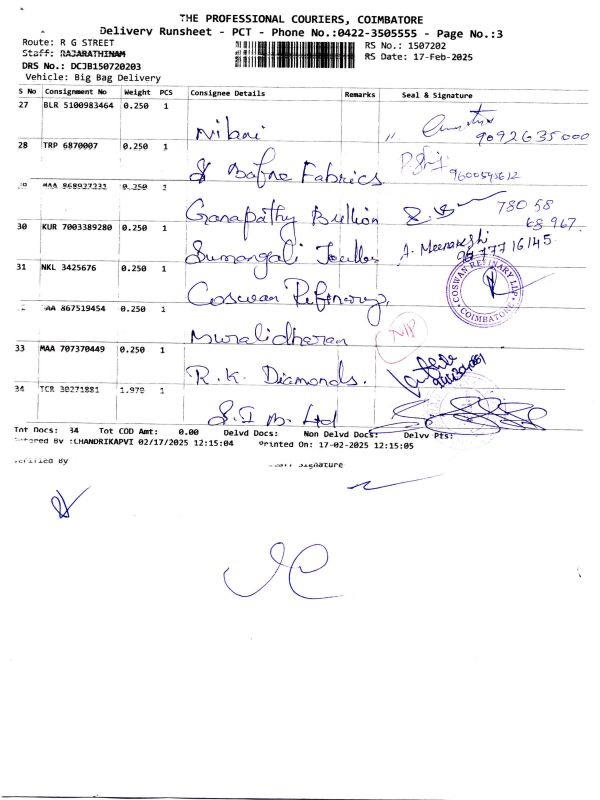 THE PROFESSIONAL COURIERS, COIMBATORE
Delivery Runsheet - PCT - Phone No.:0422-3505555 - Page No.:3
Route: R G STREET
RS No.: 1507202
Staff: RAJARATHINAM
RS Date: 17-Feb-2025
DRS No.: DCJB150720203
Vehicle: Big Bag Delivery
S No Consignment No Weight PCS Consignee Details Remarks Seal & Signature
27 BLR 5100983464 0.250 1
9092635000
28 TRP 6870007 0.250 1
Bafna Fabrics
MAA 868927231 0.250 1
Ganapathy Bullion 78058
68967
30 KUR 7003389280 0.250 1
Sumangali A. Meenakshi
31 NKL 3425676 0.250 1
Coswan Refinery
COSWAN REFINARY LLP
COIMBATORE
AA 867519454 0.250 1
Muralidharan
33 MAA 707370449 0.250 1
R.K. Diamonds.
34 TCR 30271881 1.970 1
S.I.M. Ltd
Tot Docs: 34 Tot COD Amt: 0.00 Delvd Docs: Non Delvd Docs: Delvy Pts:
Entered By :CHANDRIKAPVI 02/17/2025 12:15:04 Printed On: 17-02-2025 12:15:05
Verified By Staff Signature